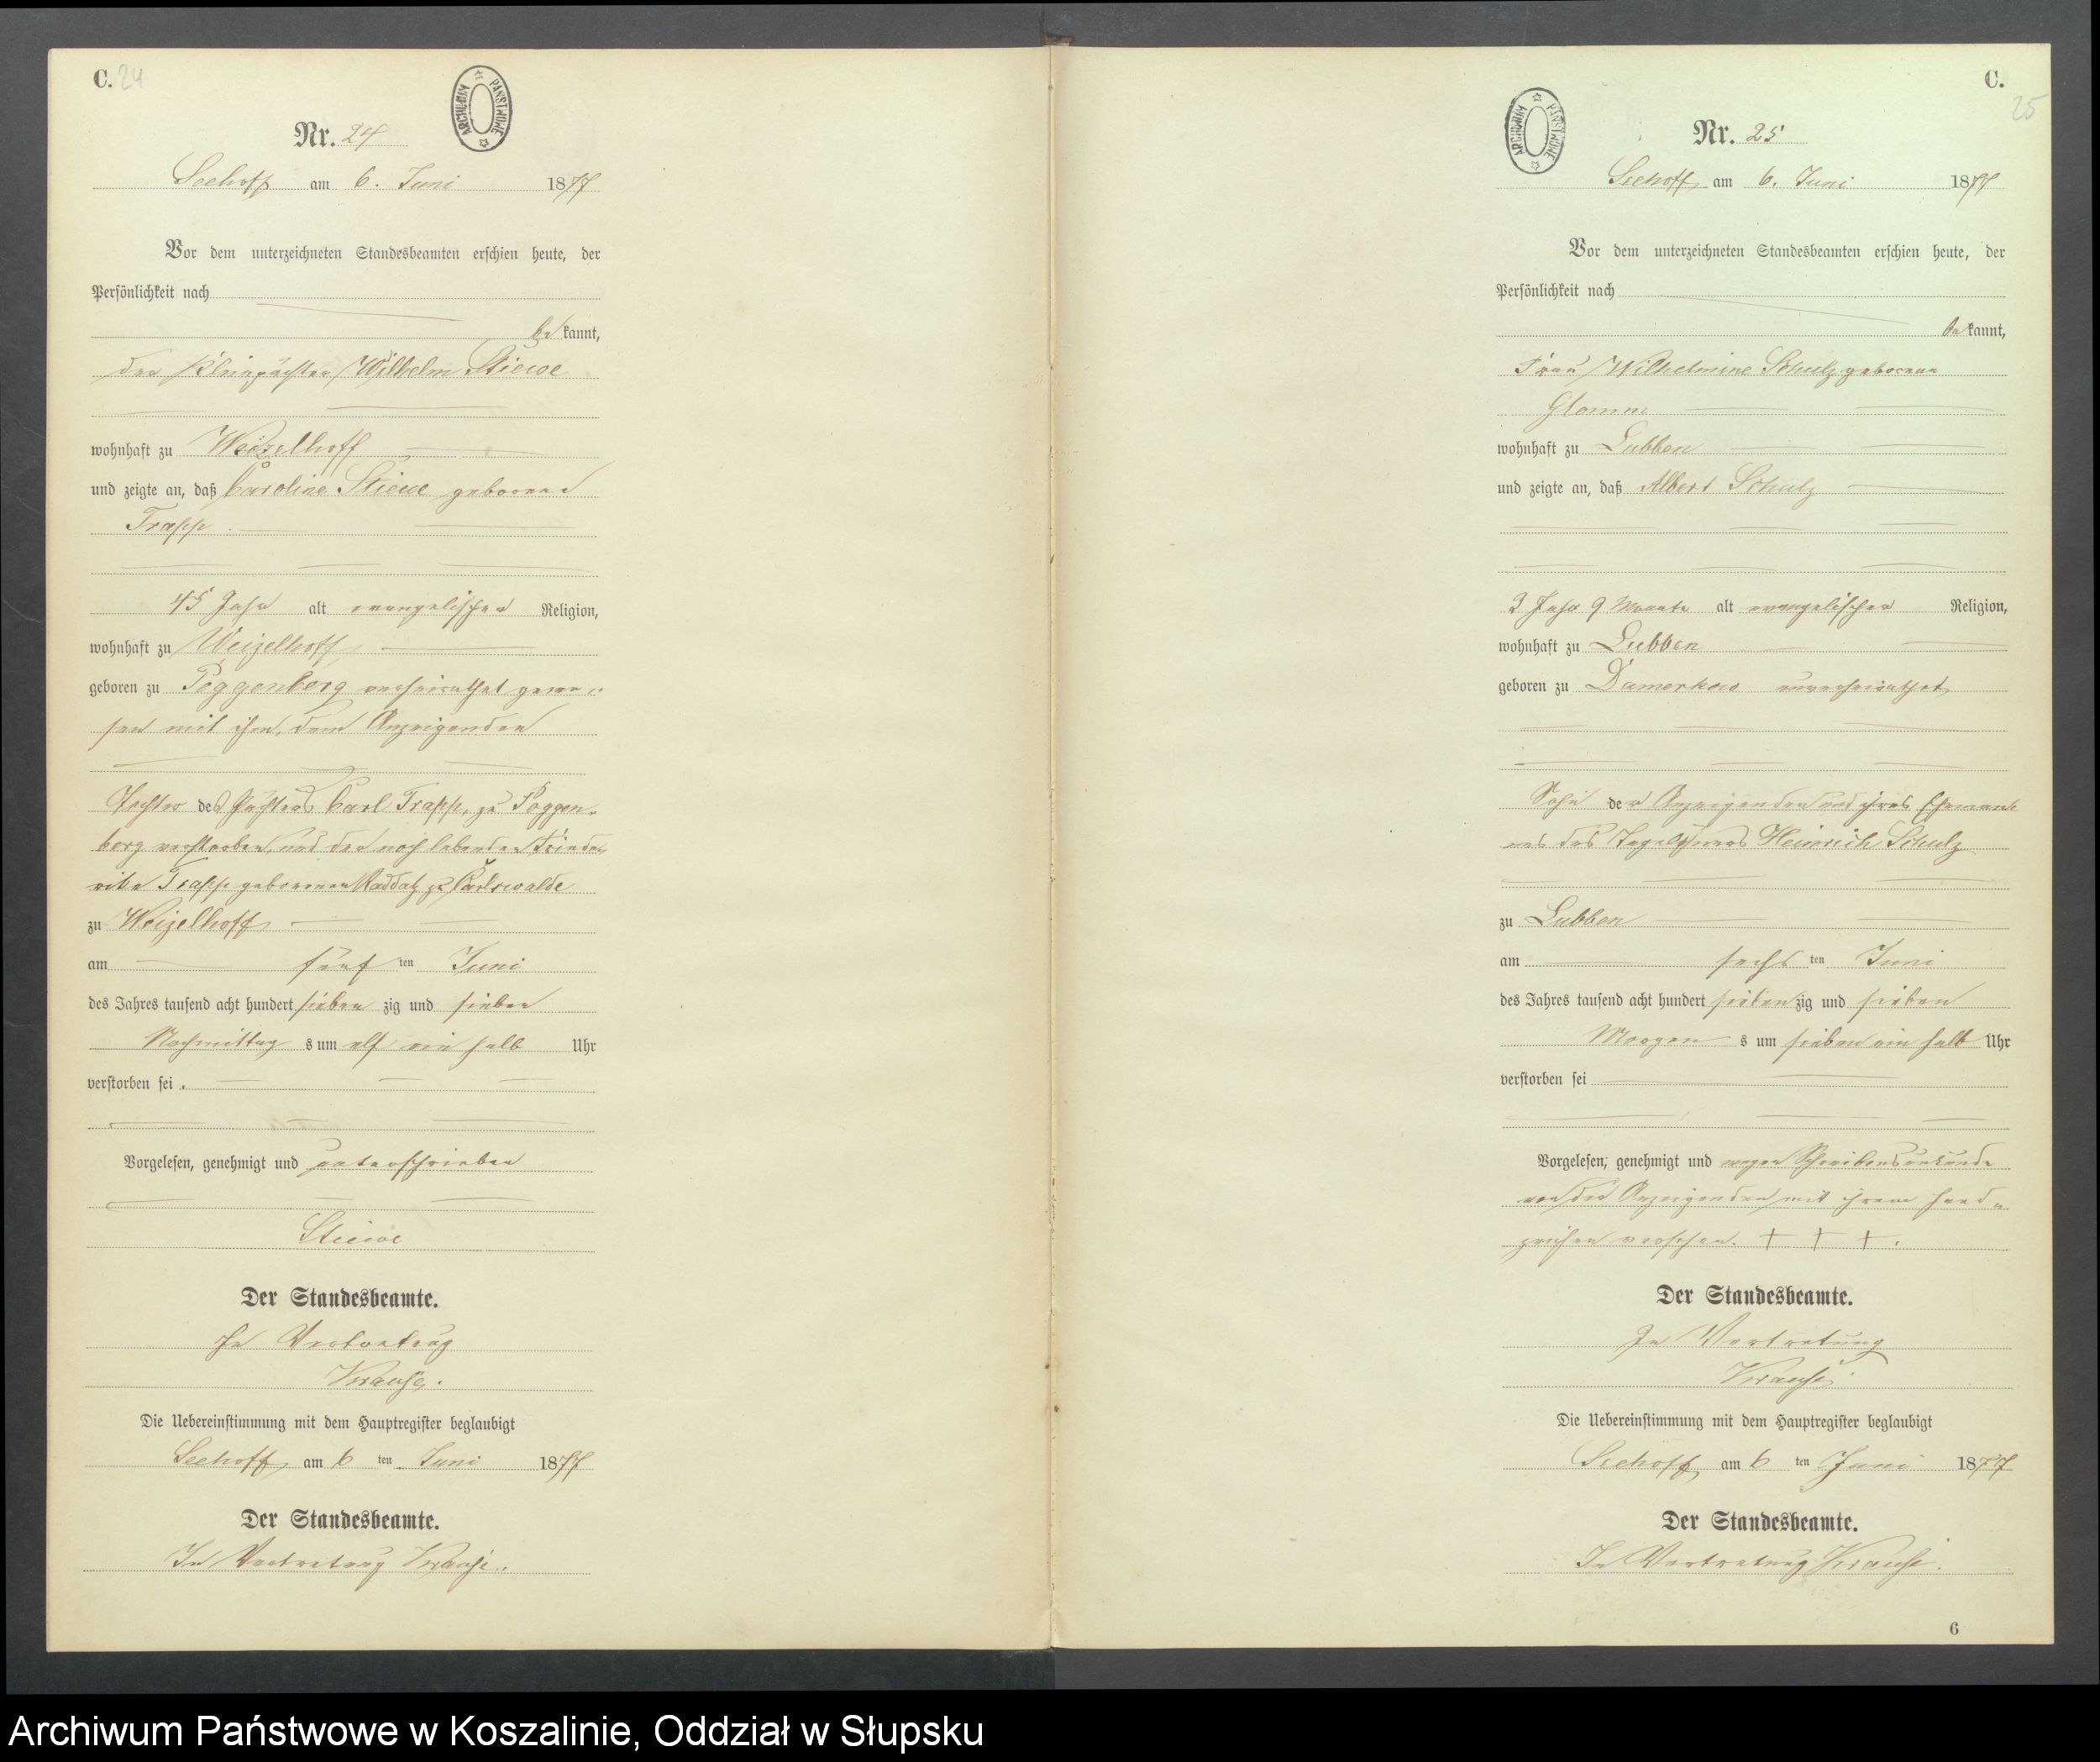 C. 24
ARCHIWUM PAŃSTWOWE
Nr. 24
Seehoff am 6. Juni 1877
Vor dem unterzeichneten Standesbeamten erschien heute, der
Persönlichkeit nach
bekannt,
der Kleinpächter Wilhelm Stiewe
wohnhaft zu Weizelhoff
und zeigte an, daß Caroline Stiewe geborene
Trapp
45 Jahr alt evangelischer Religion,
wohnhaft zu Weizelhoff
geboren zu Poggenberg verheirathet gewe-
sen mit ihm, dem Anzeigenden
Tochter des Pächters Carl Trapp, zu Poggen-
berg verstorben, und der noch lebenden Friede-
rike Trapp geborenen Raddatz zu Carlswalde
zu Weizelhoff
am fünf ten Juni
des Jahres tausend acht hundert sieben zig und sieben
Nachmittag s um elf ein halb Uhr
verstorben sei.
Vorgelesen, genehmigt und unterschrieben
Stiewe
Der Standesbeamte.
In Vertretung
Krause.
Die Uebereinstimmung mit dem Hauptregister beglaubigt
Seehoff, am 6 ten Juni 1877
Der Standesbeamte.
In Vertretung Krause.
C.
25
ARCHIWUM PAŃSTWOWE
Nr. 25
Seehoff, am 6. Juni 1877
Vor dem unterzeichneten Standesbeamten erschien heute, der
Persönlichkeit nach
bekannt,
Frau Wilhelmine Schulz geborene
Glamm
wohnhaft zu Lubben
und zeigte an, daß Albert Schulz
3 Jahr 9 Monate alt evangelischer Religion,
wohnhaft zu Lubben
geboren zu Damerkow unverheirathet
Sohn der Anzeigenden und ihres Eheman-
nes des Tagelöhners Heinrich Schulz
zu Lubben
am sechs ten Juni
des Jahres tausend acht hundert sieben zig und sieben
Morgen s um sieben ein halb Uhr
verstorben sei
Vorgelesen, genehmigt und wegen Schreibensunkunde
von der Anzeigenden mit ihrem Hand-
zeichen versehen. + + +.
Der Standesbeamte.
In Vertretung
Krause.
Die Uebereinstimmung mit dem Hauptregister beglaubigt
Seehoff, am 6 ten Juni 1877
Der Standesbeamte.
In Vertretung Krause.
6
Archiwum Państwowe w Koszalinie, Oddział w Słupsku